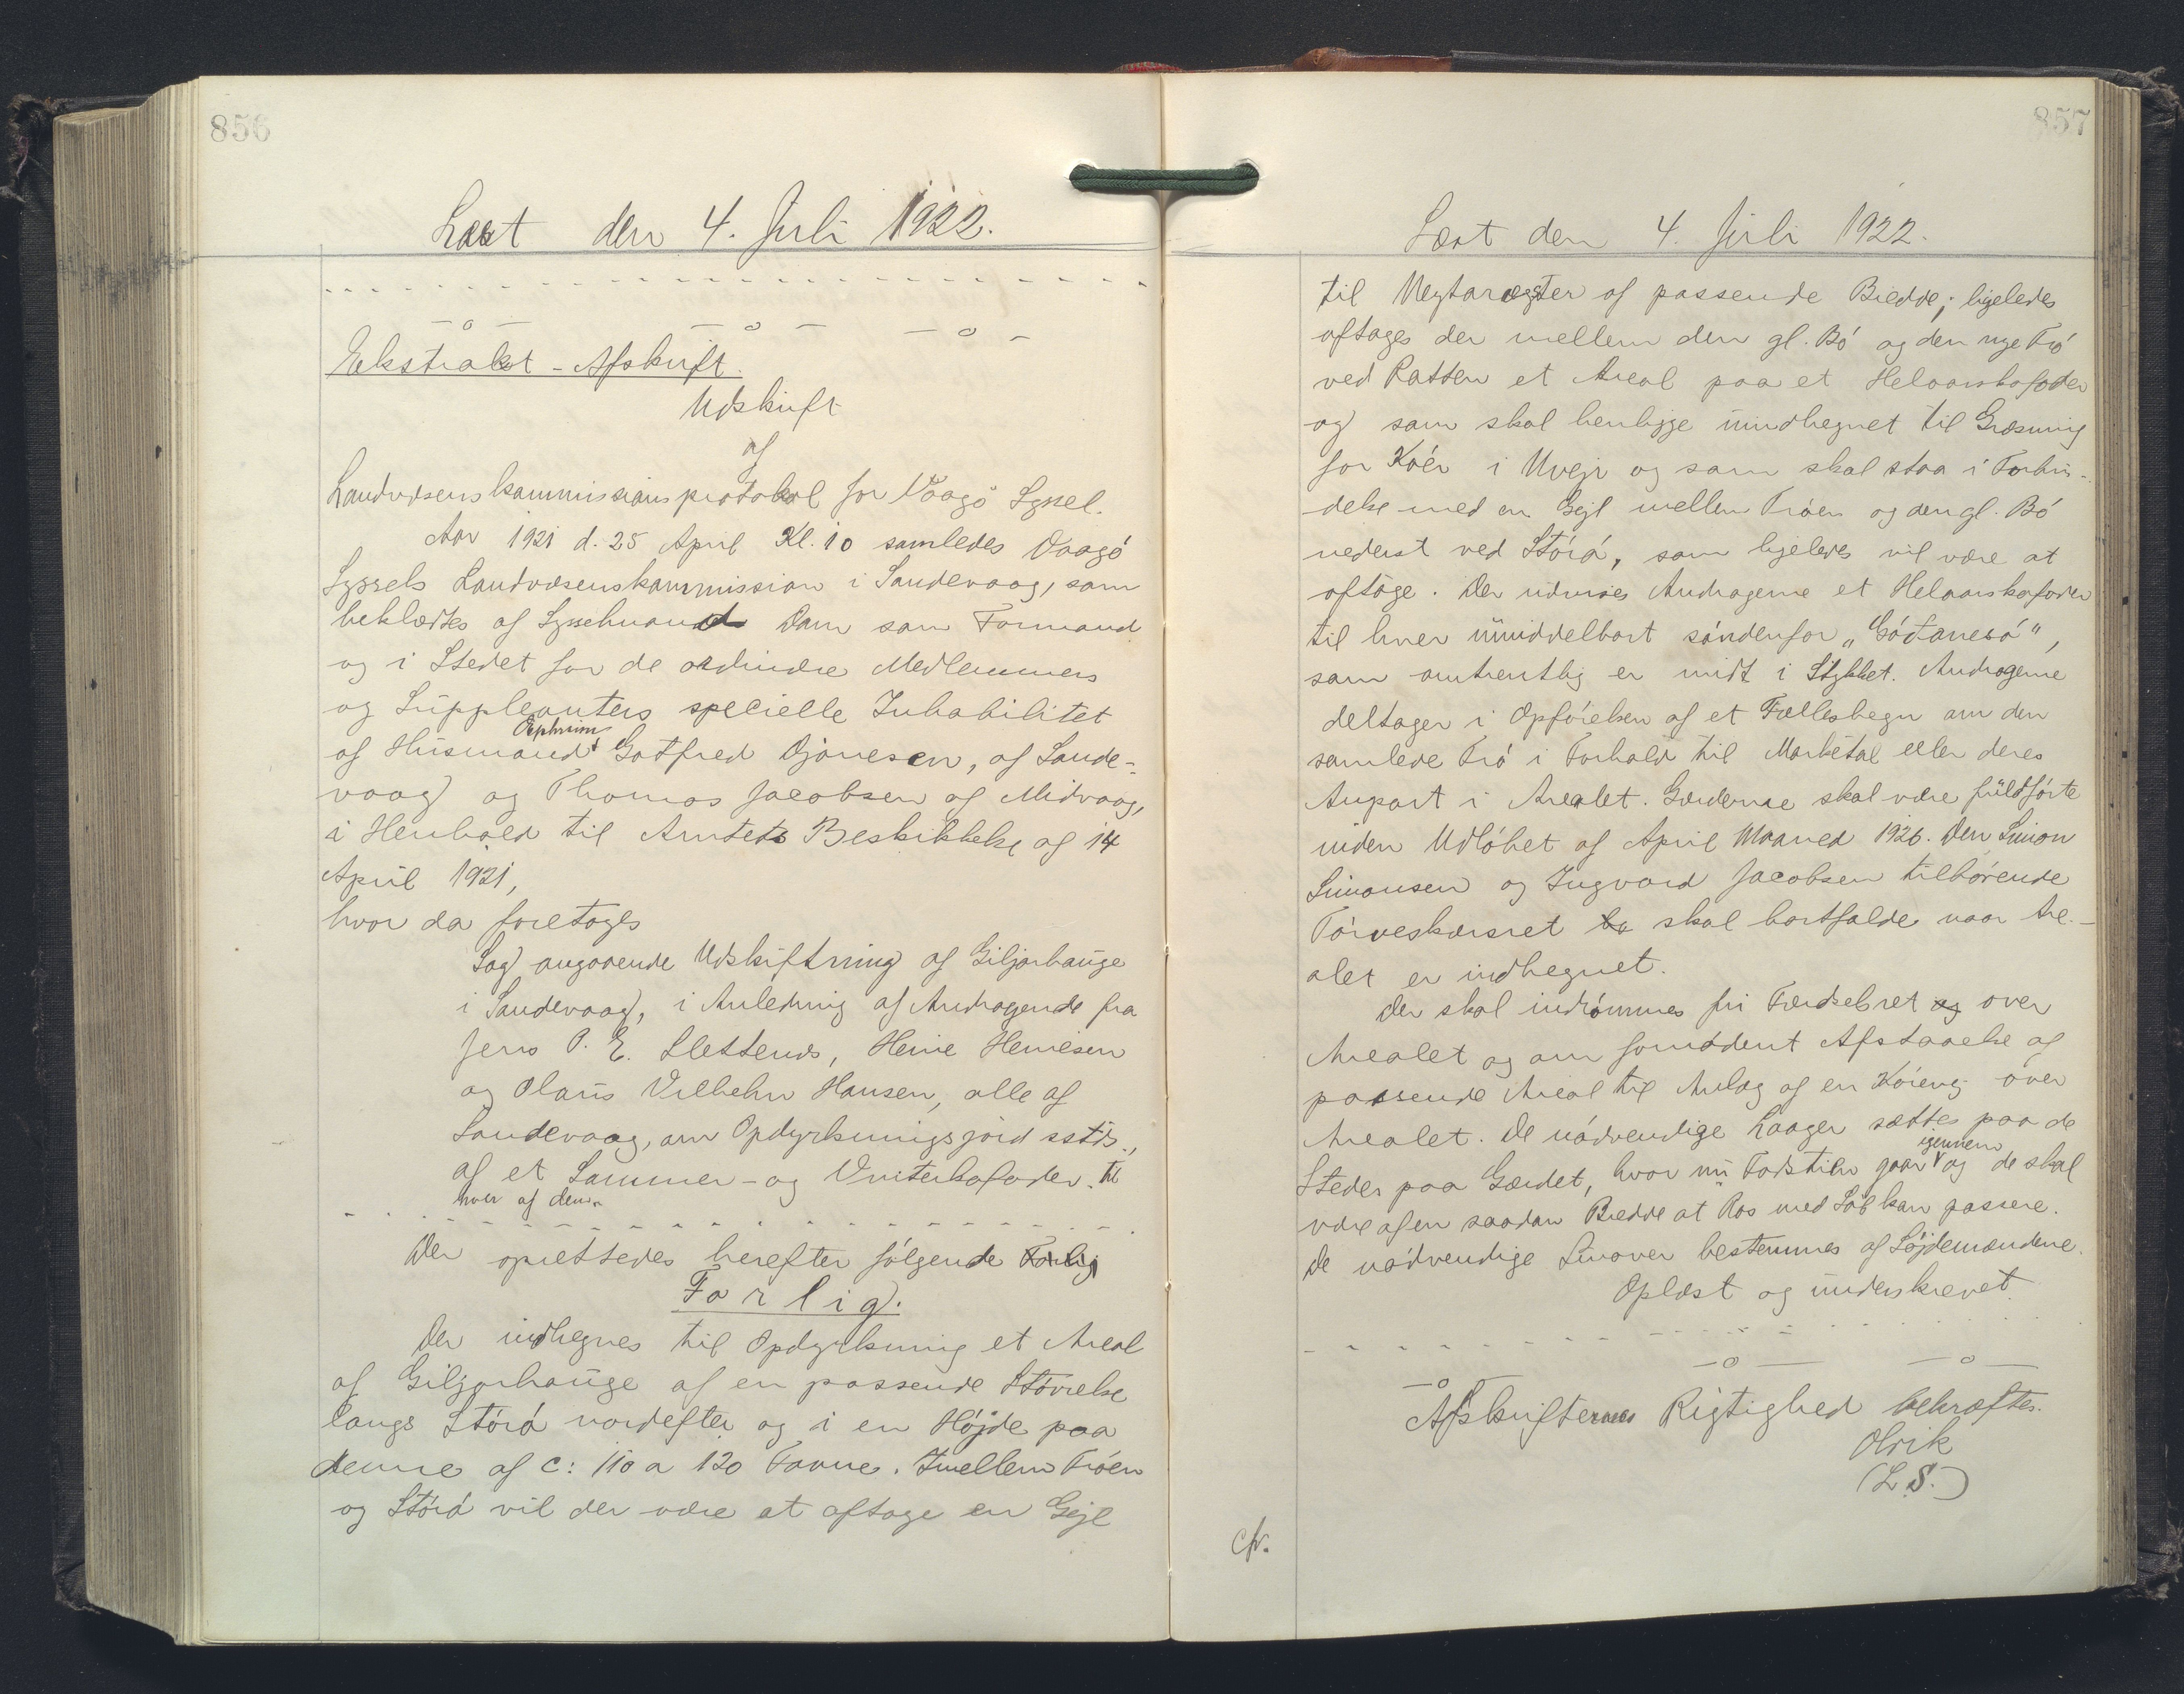 856
Læst den 4. Juli 1922.
Ekstrakt-Afskrift.
Udskrift
af
Landvæsenskommissionsprotokol for Vaagø Syssel.
Aar 1921 d. 25 April Kl. 10 samledes Vaagø
Syssels Landvæsenskommission i Sandevaag, som
beklædtes af Sysselmand Dam som Formand
og i Stedet for de ordinære Medlemmers
og Suppleanters specielle Inhabilitet
Ephraim
af Husmand Gotfred Djonesen, af Sande-
vaag og Thomas Jacobsen af Midvaag,
i Henhold til Amtets Beskikkelse af 14
April 1921,
hvor da foretoges
Sag angaaende Udskiftning af Giljarhauge
i Sandevaag, i Anledning af Andragende fra
Jens P. E. Slettenes, Heine Heinesen
og Olaus Vilhelm Hansen, alle af
Sandevaag, om Opdyrkningsjord sstds.,
af et Sommer- og Vinterkofoder til
hver af dem.
Der oprettedes herefter følgende Forlig
Forlig.
Der indhegnes til Opdyrkning et Areal
af Giljarhauge af en passende Størrelse
langs Stórá nordefter og i en Højde paa
denne af c: 110 a 120 Favne. Imellem Trøen
og Stórá vil der være at aftage en Gejl
857
Læst den 4. Juli 1922.
til af passende Bredde; ligeledes
aftages der mellem den gl. Bø og den nye Trø
ved Ratten et Areal paa et Helaarskofoder
og som skal henligge uindhegnet til Græsning
for Køer i Uvejr og som skal staa i Forbin-
delse med en Gejl mellem Trøen og den gl. Bø
nederst ved Stórá, som ligeledes vil være at
aftage. Der udvises Andragerne et Helaarskofoder
til hver umiddelbart søndenfor "Góðanesá",
som omtrentlig er midt i Stykket. Andragerne
deltager i Opførelsen af et Fælleshegn om den
samlede Trø i Forhold til Marketal eller deres
Anpart i Arealet. Gærderne skal være fuldførte
inden Udløbet af April Maaned 1926. Den Simon
Simonsen og Ingvard Jacobsen tilhørende
Tørveskæret skal bortfalde naar Are-
alet er indhegnet.
Der skal indrømmes fri Færdselsret og over
Arealet og om fornødent Afstaaelse af
passende Areal til Anlæg af en Kørevej over
Arealet. De nødvendige Laager sættes paa de
igennem
Steder paa Gærdet, hvor nu Fodstien gaar og de skal
være af en saadan Bredde at Ros med Løb kan passere.
De nødvendige Smover bestemmes af Løjdemændene.
Oplæst og underskrevet.
Afskriftens Rigtighed bekræftes.
Olrik
(L.S.)
cfr.